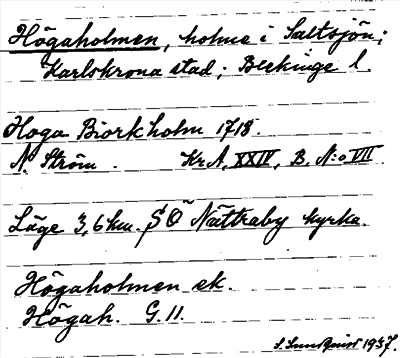 Högaholmen, holme i Saltsjön;
Karlskrona stad; Blekinge l.
Hoga Biorkholm 1718.
N. Ström. Kr. A, XXIV, B. N:o VII
Läge 3,6 km. SÖ Nättraby kyrka.
Högaholmen ek.
Högah. G. 11.
S. Sundquist 1937.